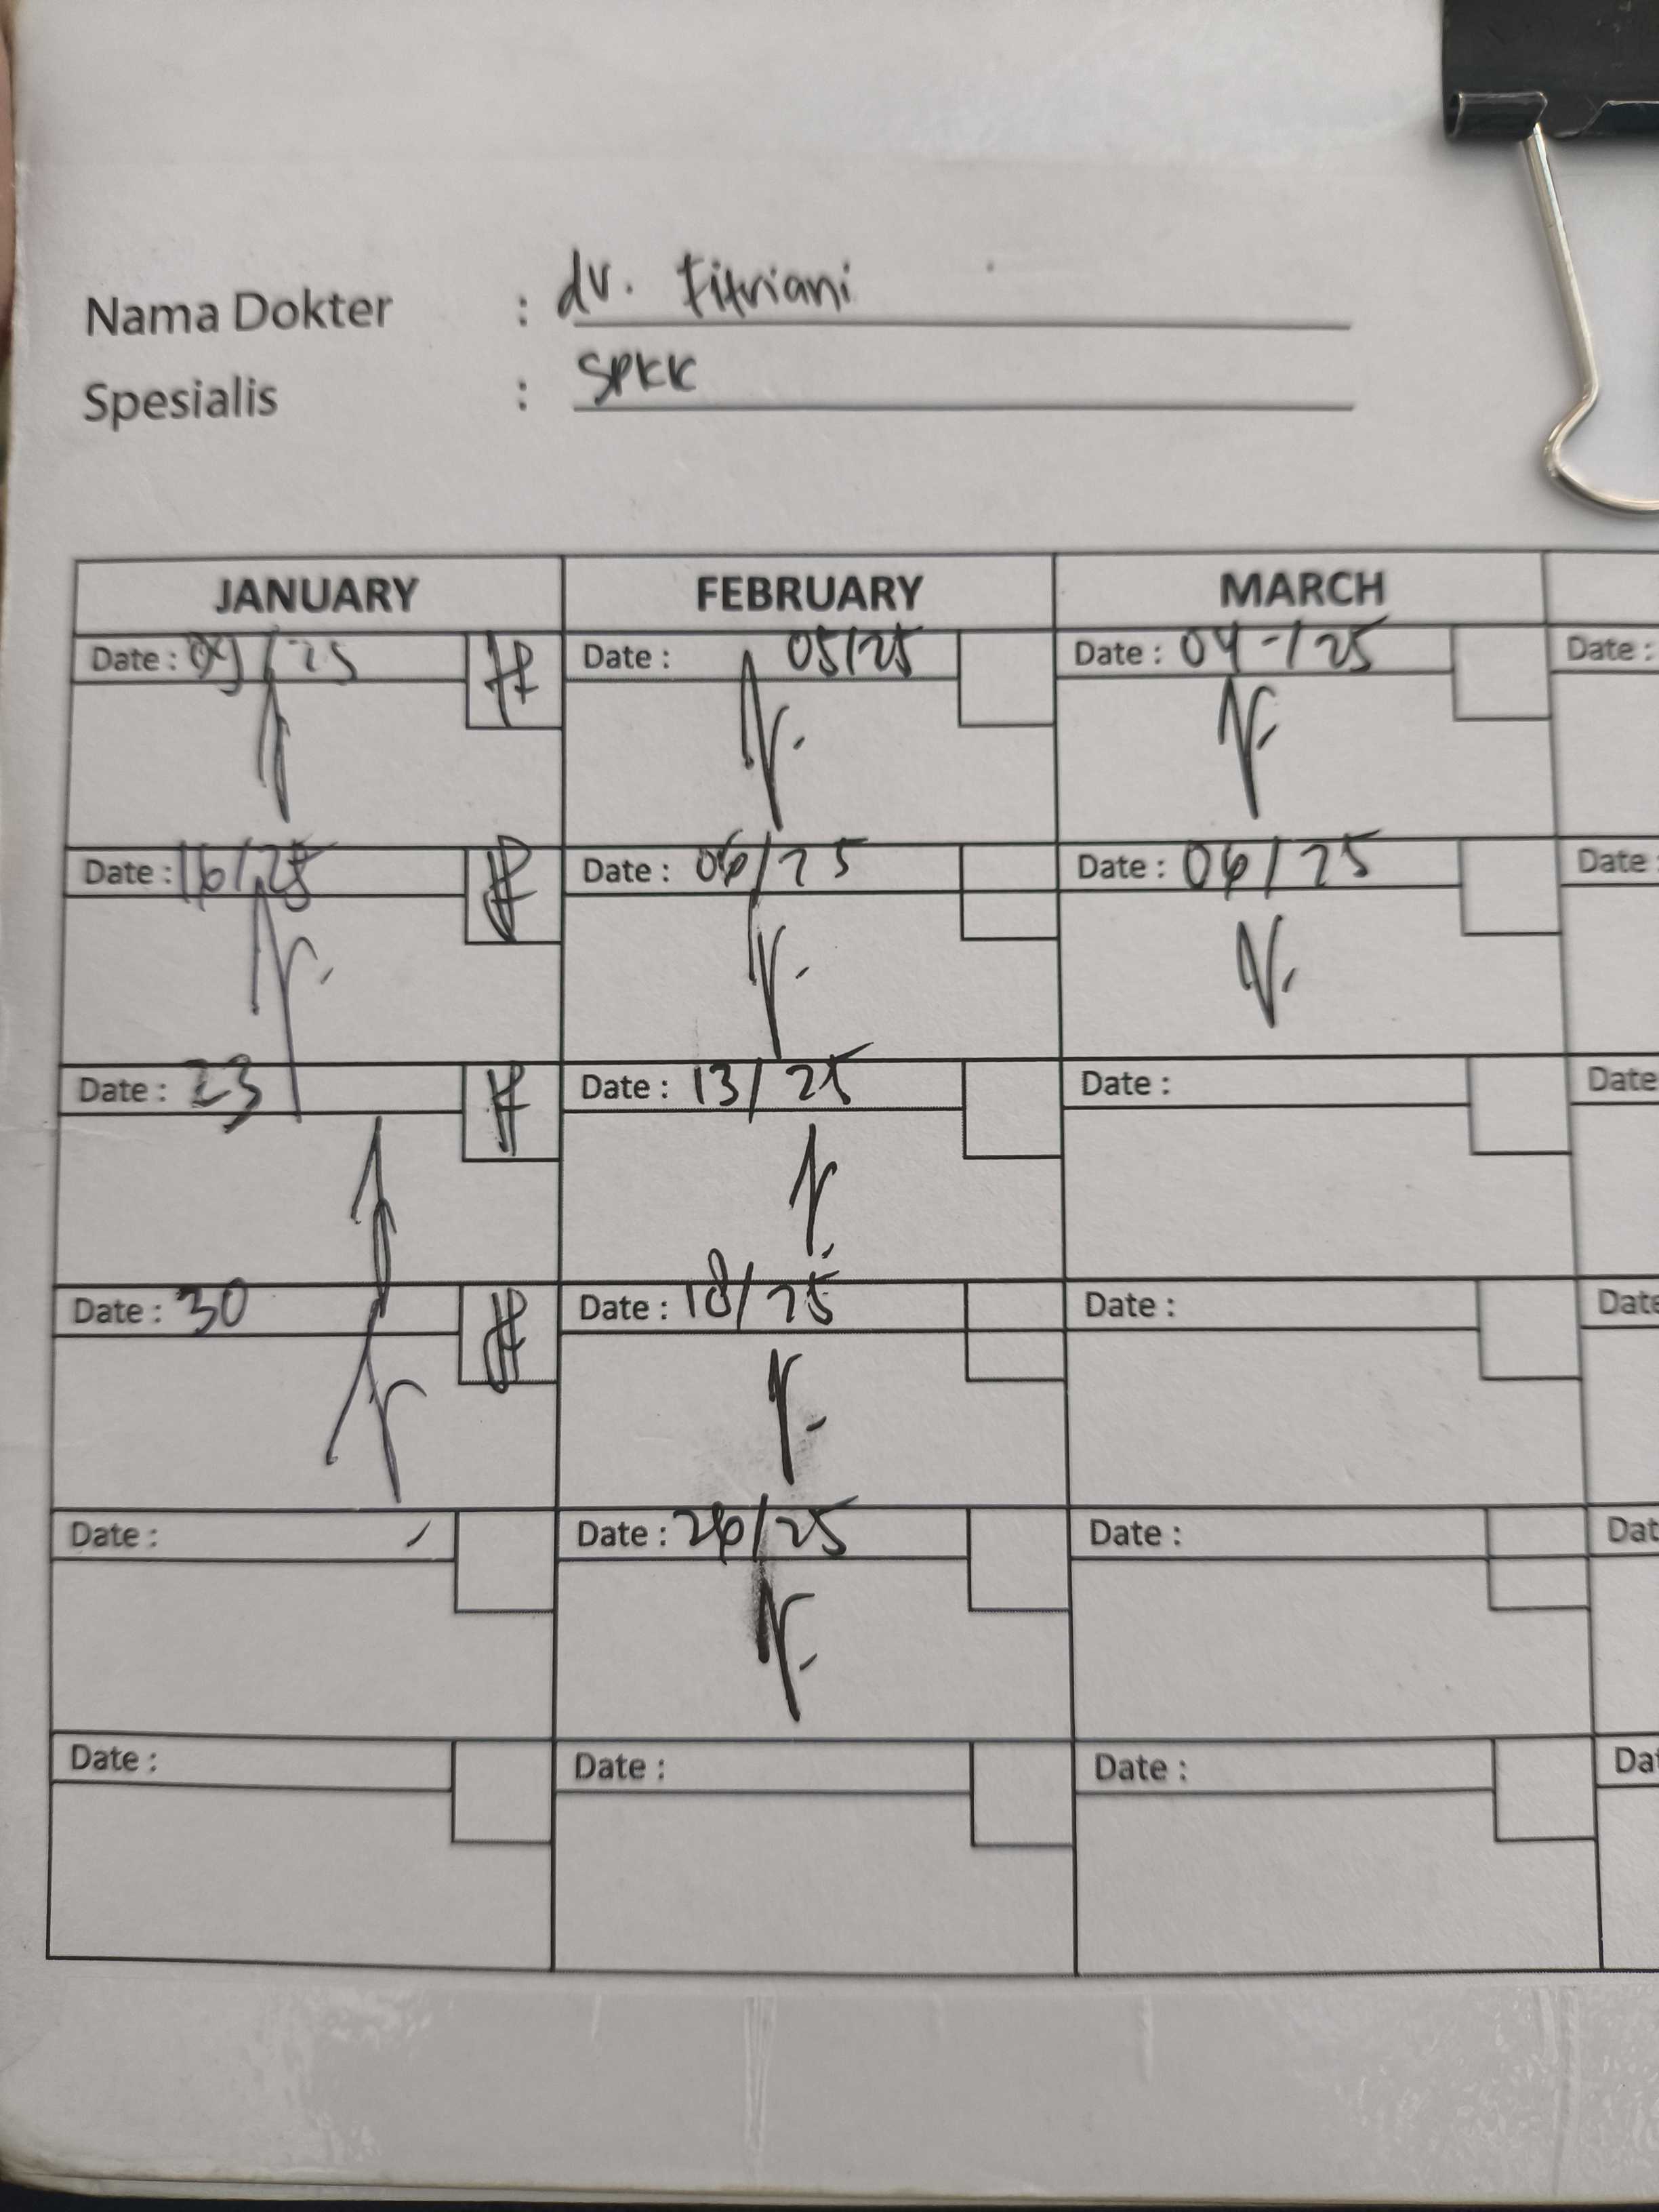 Nama Dokter : dr. Fitriani
Spesialis : SPKK
JANUARY FEBRUARY MARCH
Date : 09/25 Date : 05/25 Date : 04-/25 Date :
Date : 16/25 Date : 06/25 Date : 06/25 Date :
Date : 23 Date : 13/25 Date : Date
Date : 30 Date : 18/25 Date : Date
Date : Date : 26/25 Date : Dat
Date : Date : Date : Dat